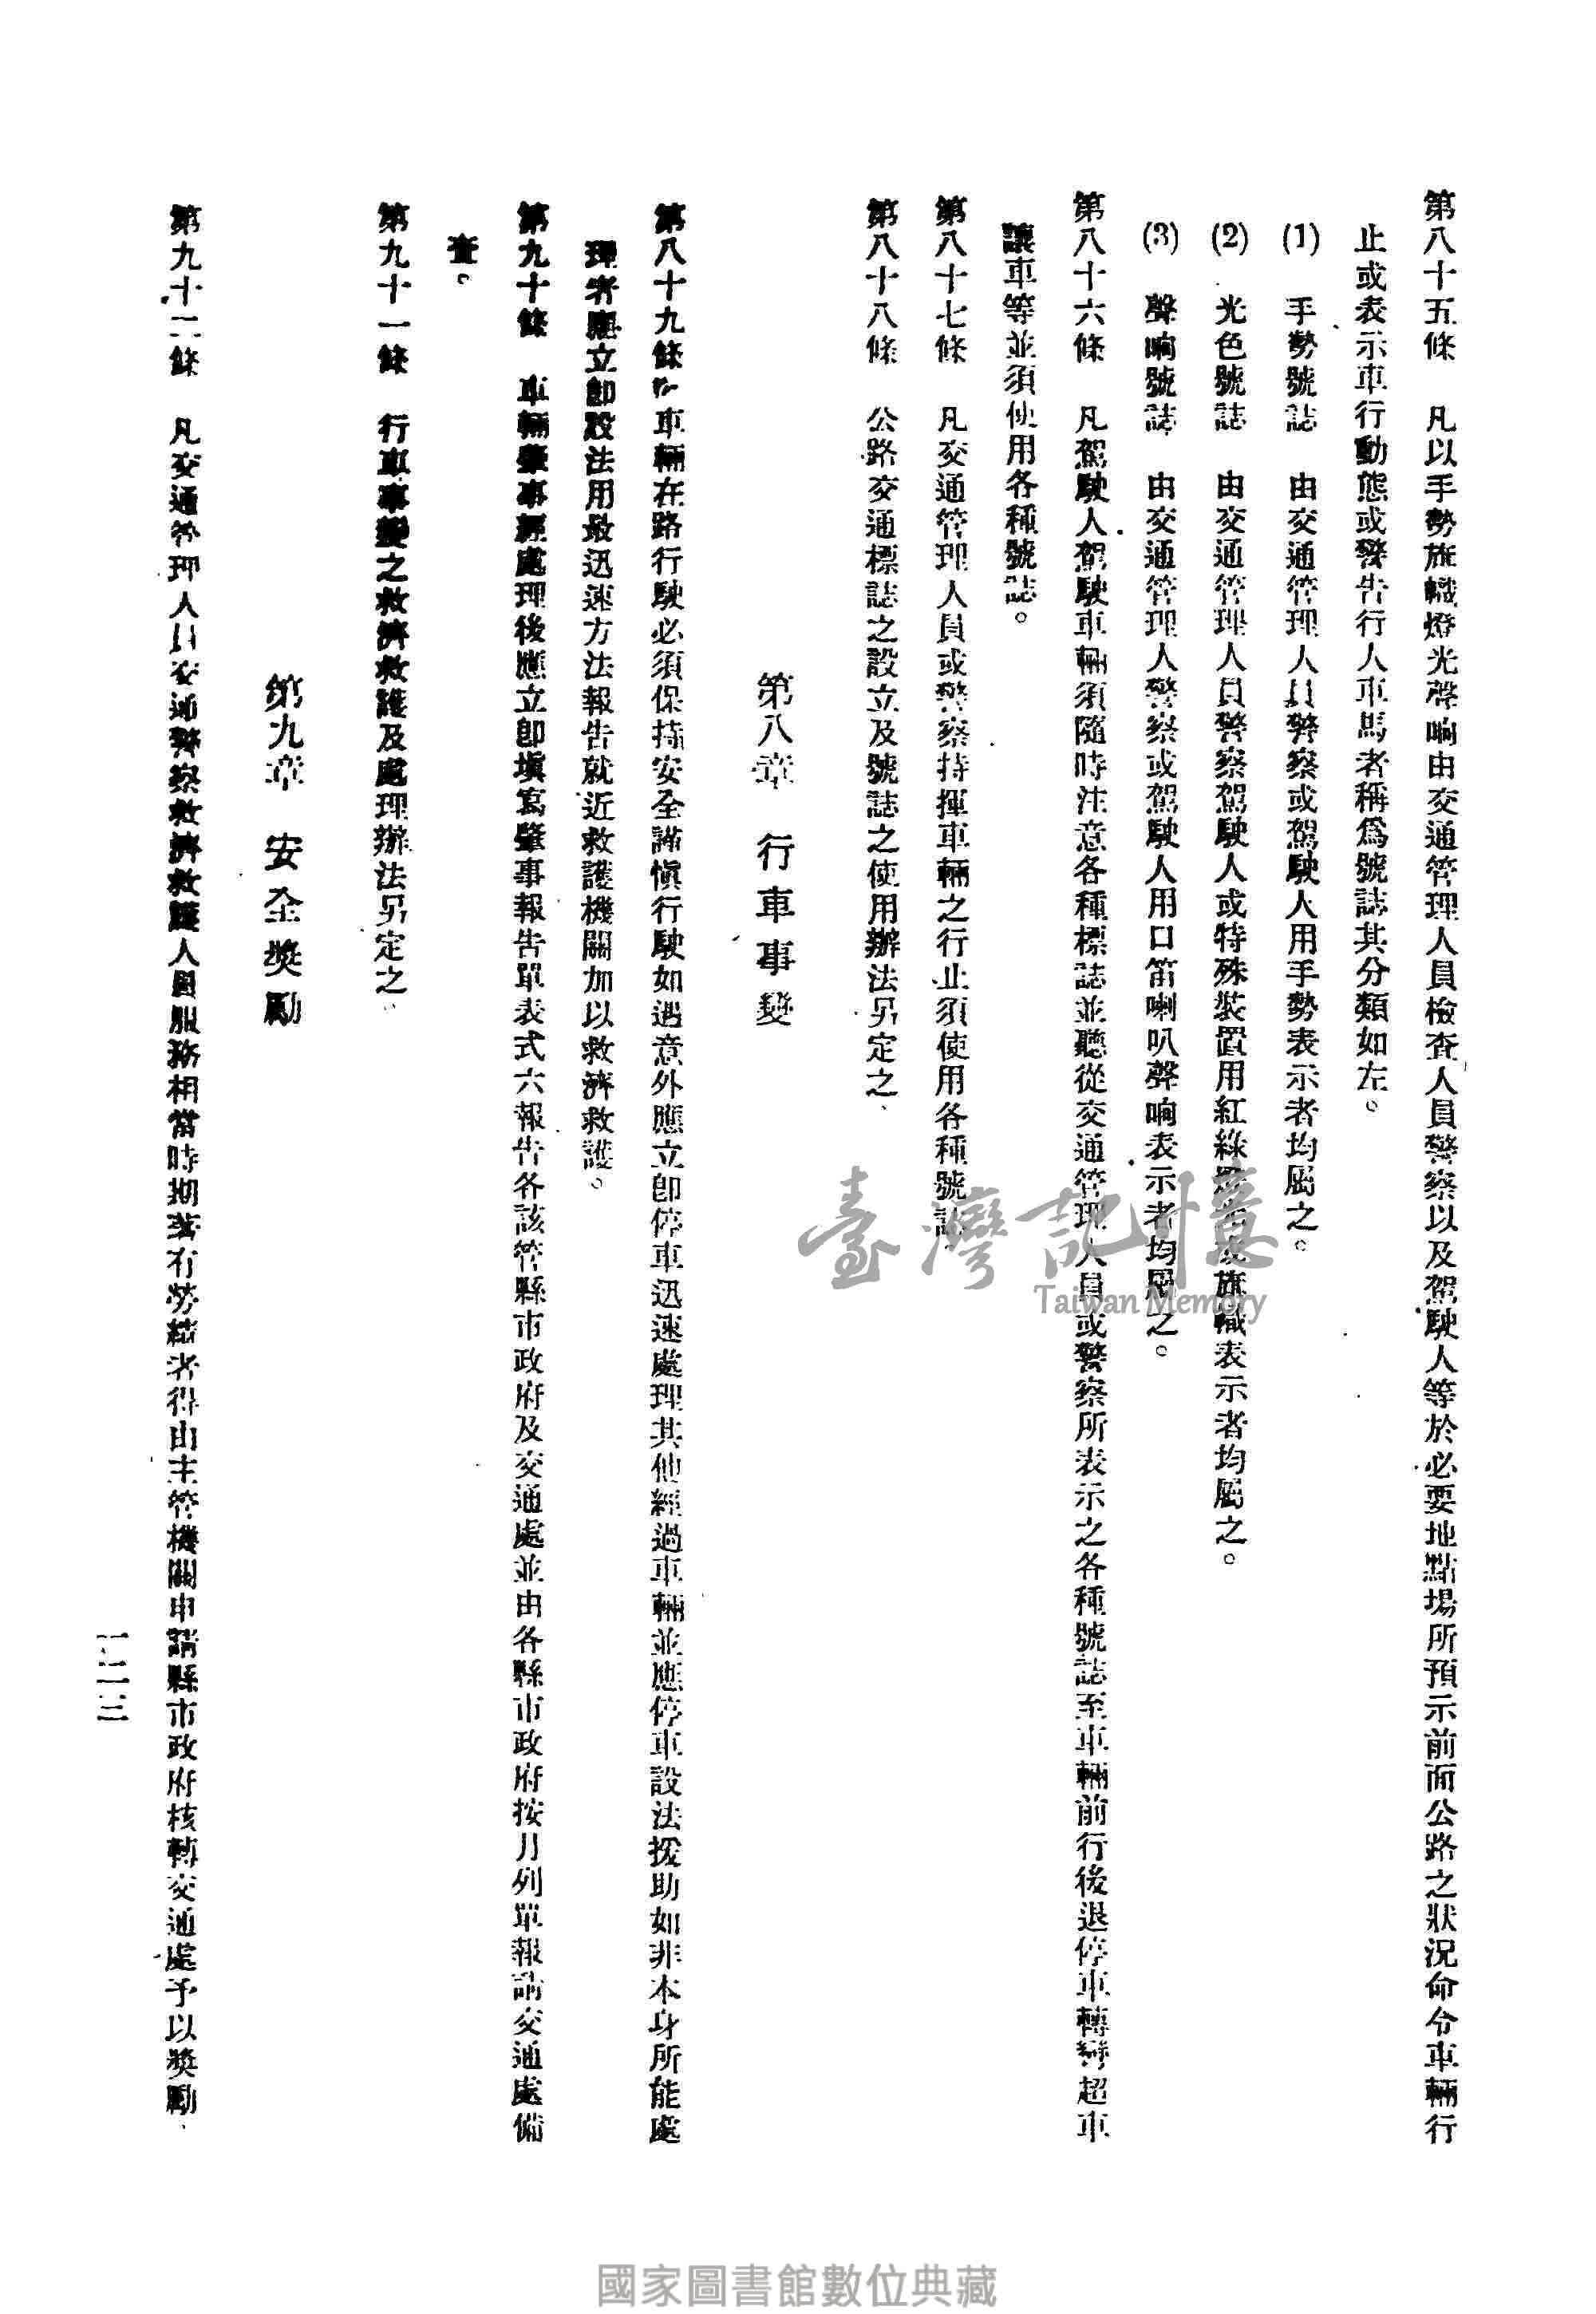 第八十五條　凡以手勢旗幟燈光聲响由交通管理人員檢查人員警察以及駕駛人等於必要地點場所預示前面公路之狀況命令車輛行
止或表示車行動態或警告行人車馬者稱爲號誌其分類如左。
(1)　手勢號誌　由交通管理人員警察或駕駛人用手勢表示者均屬之。
(2)　光色號誌　由交通管理人員警察駕駛人或特殊裝置用紅綠燈光或旗幟表示者均屬之。
(3)　聲响號誌　由交通管理人警察或駕駛人用口笛喇叭聲响表示者均屬之。
第八十六條　凡駕駛人駕駛車輛須隨時注意各種標誌並聽從交通管理人員或警察所表示之各種號誌至車輛前行後退停車轉彎超車
讓車等並須使用各種號誌。
第八十七條　凡交通管理人員或警察持揮車輛之行止須使用各種號誌
第八十八條　公路交通標誌之設立及號誌之使用辦法另定之、
第八章　行車事變
第八十九條　車輛在路行駛必須保持安全謹愼行駛如遇意外應立卽停車迅速處理其他經過車輛並應停車設法援助如非本身所能處
理者應立卽設法用最迅速方法報告就近救護機關加以救濟救護。
第九十條　車輛肇事經處理後應立卽塡寫肇事報告單表式六報告各該管縣市政府及交通處並由各縣市政府按月列單報請交通處備
查。
第九十一條　行車事變之救濟救護及處理辦法另定之。
第九章　安全獎勵
第九十二條　凡交通管理人員交通警察救濟救護人員服務相當時期著有勞績者得由主管機關申請縣市政府核轉交通處予以獎勵、
一二三
臺灣記憶
Taiwan Memory
國家圖書館數位典藏